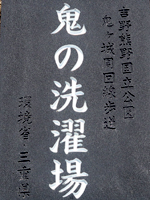 吉野熊野国立公園
鬼ヶ城周回線歩道
鬼の洗濯場
環境省・三重県